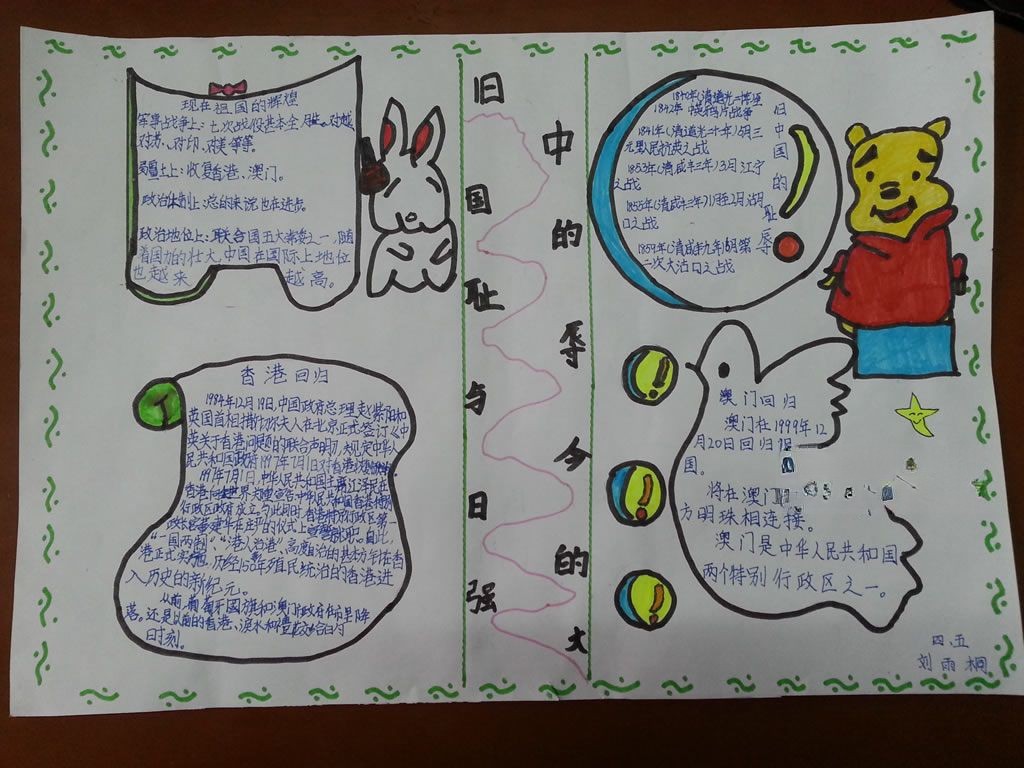 现在祖国的辉煌
军事战争上：七次战役基本全胜。对越
对苏、对印、对美等等。
疆土上：收复香港、澳门。
政治体制上：总的来说也在进步。
政治地位上：联合国五大常委之一，随
着国力的壮大，中国在国际上地位
也越来越高。
香港回归
1984年12月19日，中国政府总理赵紫阳和
英国首相撒切尔夫人在北京正式签订《中
英关于香港问题的联合声明》，
民共和国政府1997年7月1日对香港
1997年7月1日，中华人民共和国主席江泽民在
香港向全世界
行政区政府成立。与此同时，香港特别行政区第一
政长官董建华在庄严的仪式上宣誓就职。自此，
“一国两制”、“港人治港”、高度自治的基本方针在香
港正式实施，历经156年殖民统治的香港进
入历史的新纪元。
从前，葡萄牙国旗和澳门市政府在市里降
落。还是以前的香港、泪水和
时刻。
旧中国的耻辱与今日的强大
旧中国的耻辱
1840年(清道光二十年
1842年
1841年(清道光二十一年)5月三
元里人民抗英之战
1853年(清咸丰三年)3月江宁
之战
1855年(清咸丰五年)1月至2月湖
口之战
1859年(清咸丰九年)6月第
二次大沽口之战
澳门回归
澳门在1999年12
月20日回归
国。
将在澳门
方明珠相连接。
澳门是中华人民共和国
两个特别行政区之一。
四、五
刘雨桐